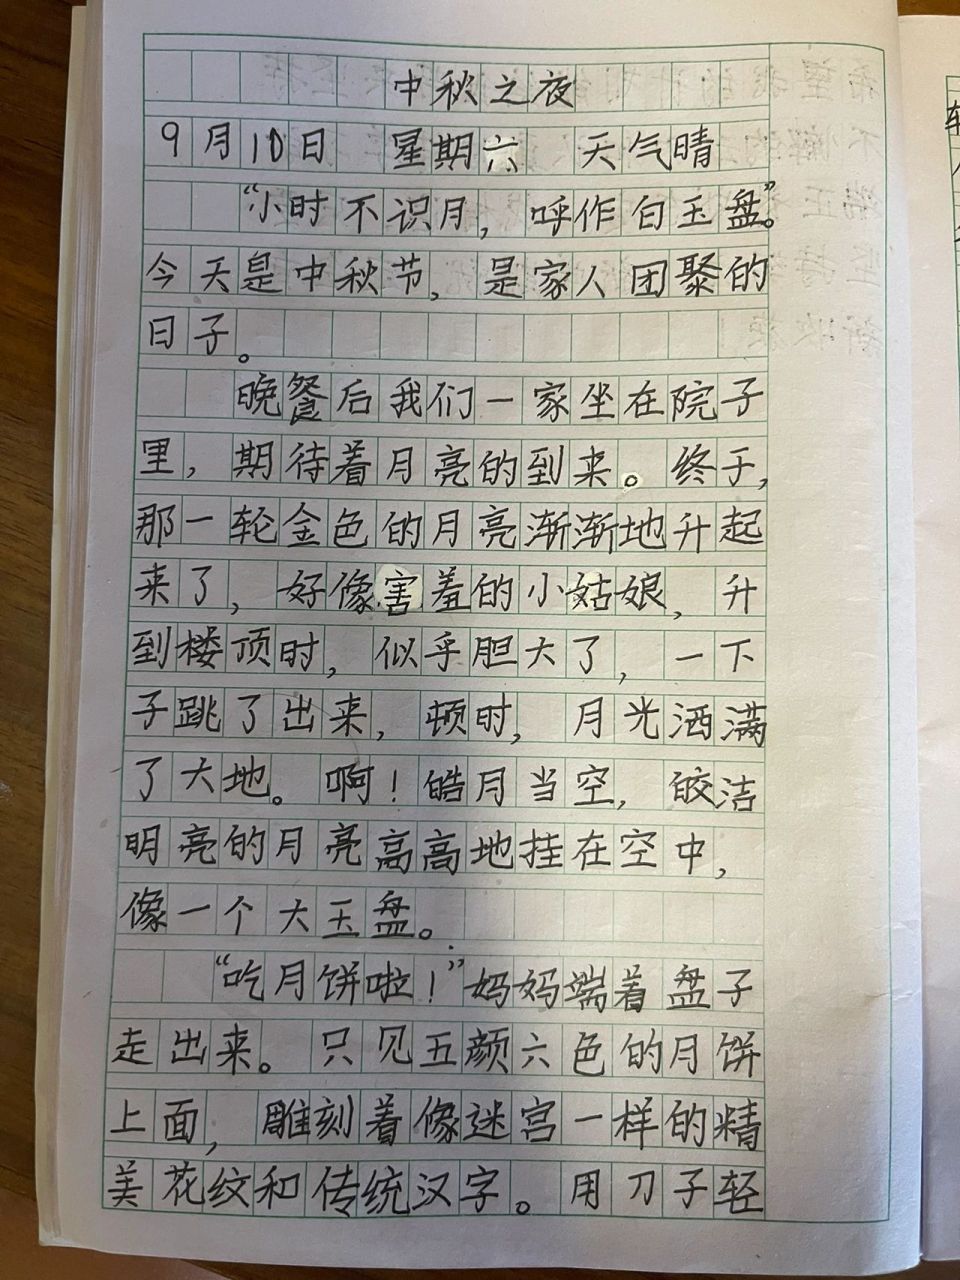 中秋之夜
9月10日 星期六 天气晴
“小时不识月，呼作白玉盘。”
今天是中秋节，是家人团聚的
日子。
晚餐后我们一家坐在院子
里，期待着月亮的到来。终于，
那一轮金色的月亮渐渐地升起
来了，好像害羞的小姑娘，升
到楼顶时，似乎胆大了，一下
子跳了出来，顿时，月光洒满
了大地。啊！皓月当空，皎洁
明亮的月亮高高地挂在空中，
像一个大玉盘。
“吃月饼啦！”妈妈端着盘子
走出来。只见五颜六色的月饼
上面，雕刻着像迷宫一样的精
美花纹和传统汉字。用刀子轻